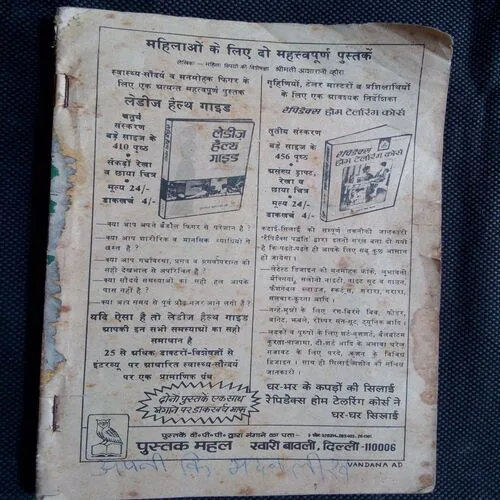 महिलाओं के लिए दो महत्त्वपूर्ण पुस्तकें
लेखिका — महिला विषयों की विशेषज्ञ श्रीमती आशारानी व्होरा
स्वास्थ्य-सौंदर्य व मनमोहक फिगर के
लिए एक अत्यन्त महत्वपूर्ण पुस्तक
लेडीज हैल्थ गाइड
चतुर्थ
संस्करण
बड़े साइज के
410 पृष्ठ
सैंकड़ों रेखा
व छाया चित्र
मूल्य 24/-
डाकखर्च 4/-
लेडीज
हैल्थ
गाइड
—क्या आप अपने बेडौल फिगर से परेशान हैं ?
—क्या आप शारीरिक व मानसिक व्याधियों से
ग्रस्त हैं ?
—क्या आप गर्भावस्था, प्रसव व प्रसवोपरान्त की
सही देखभाल से अपरिचित हैं ?
—क्या सौंदर्य समस्याओं का सही हल आपके
पास नहीं है ?
—क्या आप समय से पूर्व प्रौढ़ नजर आने लगी हैं ?
यदि ऐसा है तो लेडीज हैल्थ गाइड
आपकी इन सभी समस्याओं का सही
समाधान है
25 से अधिक डाक्टरों-विशेषज्ञों से
इंटरव्यू पर आधारित स्वास्थ्य-सौन्दर्य
पर एक प्रामाणिक ग्रंथ
गृहिणियों, टेलर मास्टरों व प्रशिक्षार्थियों
के लिए एक आवश्यक निर्देशिका
रैपिडैक्स होम टेलरिंग कोर्स
तृतीय संस्करण
बड़े साइज के
456 पृष्ठ
असंख्य ड्राफ्ट,
रेखा व
छाया चित्र
मूल्य 24/-
डाकखर्च 4/-
रैपिडैक्स
होम टेलरिंग कोर्स
कटाई-सिलाई की सम्पूर्ण तकनीकी जानकारी
'रैपिडैक्स पद्धति' द्वारा इतनी सरल बना दी गयी
है कि पढ़ते-पढ़ते ही आपके लिए सब कुछ आसान
हो जायेगा।
—लेटेस्ट डिजाइन की मनमोहक फ्रॉकें, लुभावनी
मैक्सियां, सलोनी नाइटी, नाइट सूट व गाउन,
फैशनेबल ब्लाउज, स्कर्टस, शरारा, गरारा,
सलवार-कुरता आदि।
—नन्हे-मुन्नों के लिए रंग-बिरंगे बिब, फीडर,
बॉनेट, झबले, रौम्पर सन-सूट, ट्यूनिक आदि।
—लड़कों व पुरुषों के शर्ट-बुशशर्ट, बैलबॉटम
कुरता-पाजामा, टी-शर्ट आदि के अलावा घरेलू
सजावट के लिए पर्दे, कुशन के विविध
डिजाइन। साथ ही सिलाई मशीन की सचित्र
जानकारी।
घर-भर के कपड़ों की सिलाई
रैपिडैक्स होम टेलरिंग कोर्स ने
घर-घर सिखाई
दोनों पुस्तकें एक साथ
मंगाने पर डाकखर्च माफ
पुस्तकें वी॰ पी॰ पी॰ द्वारा मंगाने का पता-
पुस्तक महल खारी बावली, दिल्ली-110006
अपनी कि
VANDANA AD